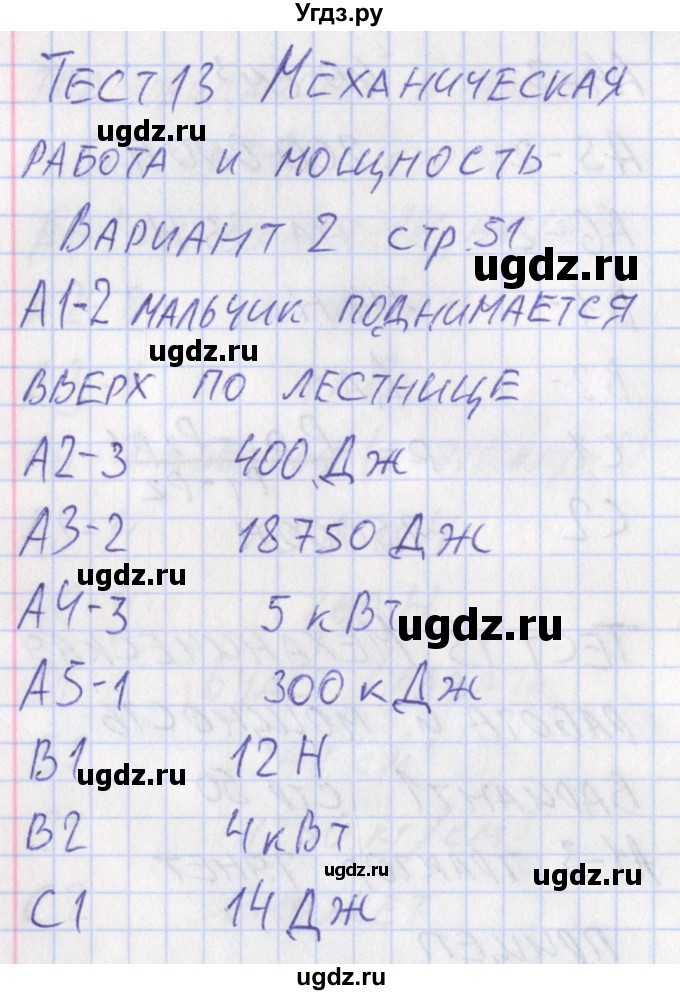 Угдз.ру
Тест 13 Механическая
ugdz.ru
работа и мощность
Вариант 2 стр. 51
ugdz.ru
А1-2 мальчик поднимается
ugdz.ru
вверх по лестнице
А2-3 400 Дж
А3-2 18750 Дж
ugdz.ru
А4-3 5 кВт
ugdz.ru
А5-1 300 кДж
В1 12 Н
ugdz.ru
В2 4 кВт
ugdz.ru
ugdz.ru
С1 14 Дж
ugdz.ru